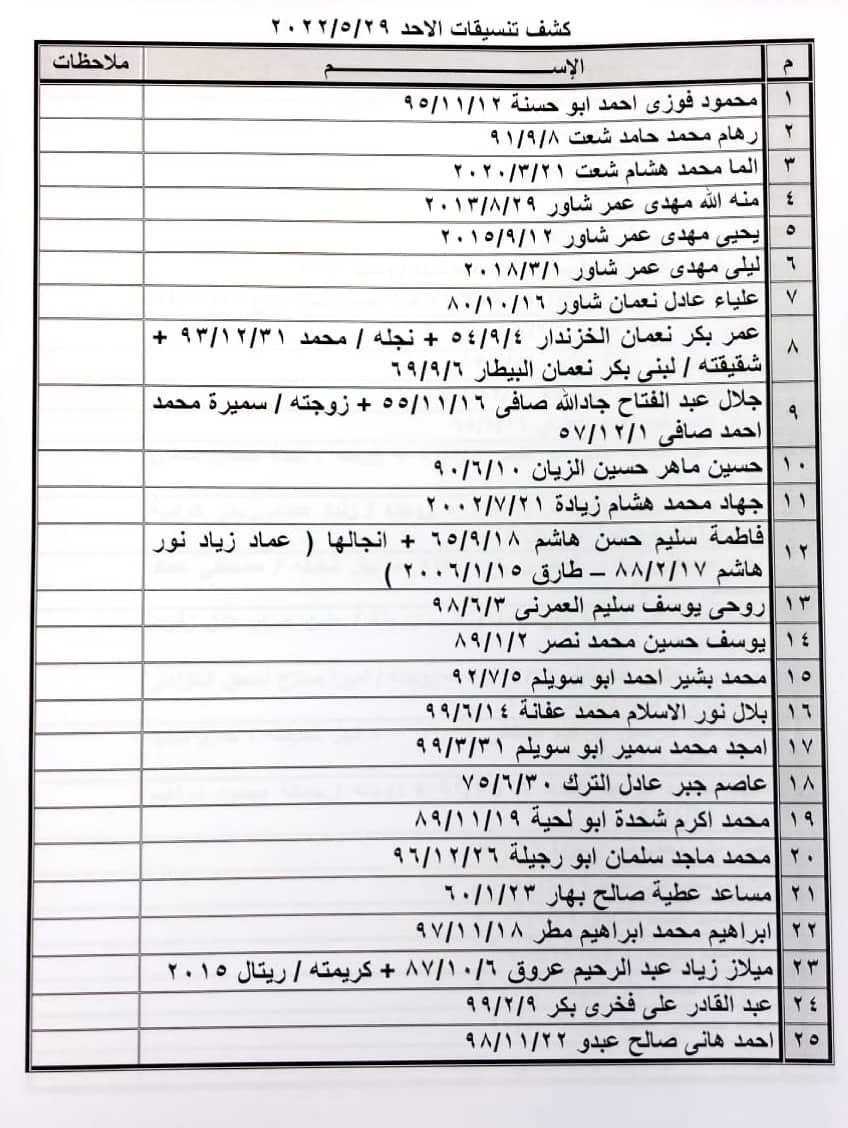 كشف تنسيقات الاحد ٢٠٢٢/٥/٢٩
م الإســـــــــــــم ملاحظات
١ محمود فوزى احمد ابو حسنة ٩٥/١١/١٢
٢ رهام محمد حامد شعت ٩١/٩/٨
٣ الما محمد هشام شعت ٢٠٢٠/٣/٢١
٤ منه الله مهدى عمر شاور ٢٠١٣/٨/٢٩
٥ يحيى مهدى عمر شاور ٢٠١٥/٩/١٢
٦ ليلى مهدى عمر شاور ٢٠١٨/٣/١
٧ علياء عادل نعمان شاور ٨٠/١٠/١٦
٨ عمر بكر نعمان الخزندار ٥٤/٩/٤ + نجله / محمد ٩٣/١٢/٣١ +
شقيقته / لبنى بكر نعمان البيطار ٦٩/٩/٦
٩ جلال عبد الفتاح جادالله صافى ٥٥/١١/١٦ + زوجته / سميرة محمد
احمد صافى ٥٧/١٢/١
١٠ حسين ماهر حسين الزيان ٩٠/٦/١٠
١١ جهاد محمد هشام زيادة ٢٠٠٢/٧/٢١
١٢ فاطمة سليم حسن هاشم ٦٥/٩/١٨ + انجالها ( عماد زياد نور
هاشم ٨٨/٢/١٧ – طارق ٢٠٠٦/١/١٥ )
١٣ روحى يوسف سليم العمرنى ٩٨/٦/٣
١٤ يوسف حسين محمد نصر ٨٩/١/٢
١٥ محمد بشير احمد ابو سويلم ٩٢/٧/٥
١٦ بلال نور الاسلام محمد عفانة ٩٩/٦/١٤
١٧ امجد محمد سمير ابو سويلم ٩٩/٣/٣١
١٨ عاصم جبر عادل الترك ٧٥/٦/٣٠
١٩ محمد اكرم شحدة ابو لحية ٨٩/١١/١٩
٢٠ محمد ماجد سلمان ابو رجيلة ٩٦/١٢/٢٦
٢١ مساعد عطية صالح بهار ٦٠/١/٢٣
٢٢ ابراهيم محمد ابراهيم مطر ٩٧/١١/١٨
٢٣ ميلاز زياد عبد الرحيم عروق ٨٧/١٠/٦ + كريمته / ريتال ٢٠١٥
٢٤ عبد القادر على فخرى بكر ٩٩/٢/٩
٢٥ احمد هانى صالح عبدو ٩٨/١١/٢٢